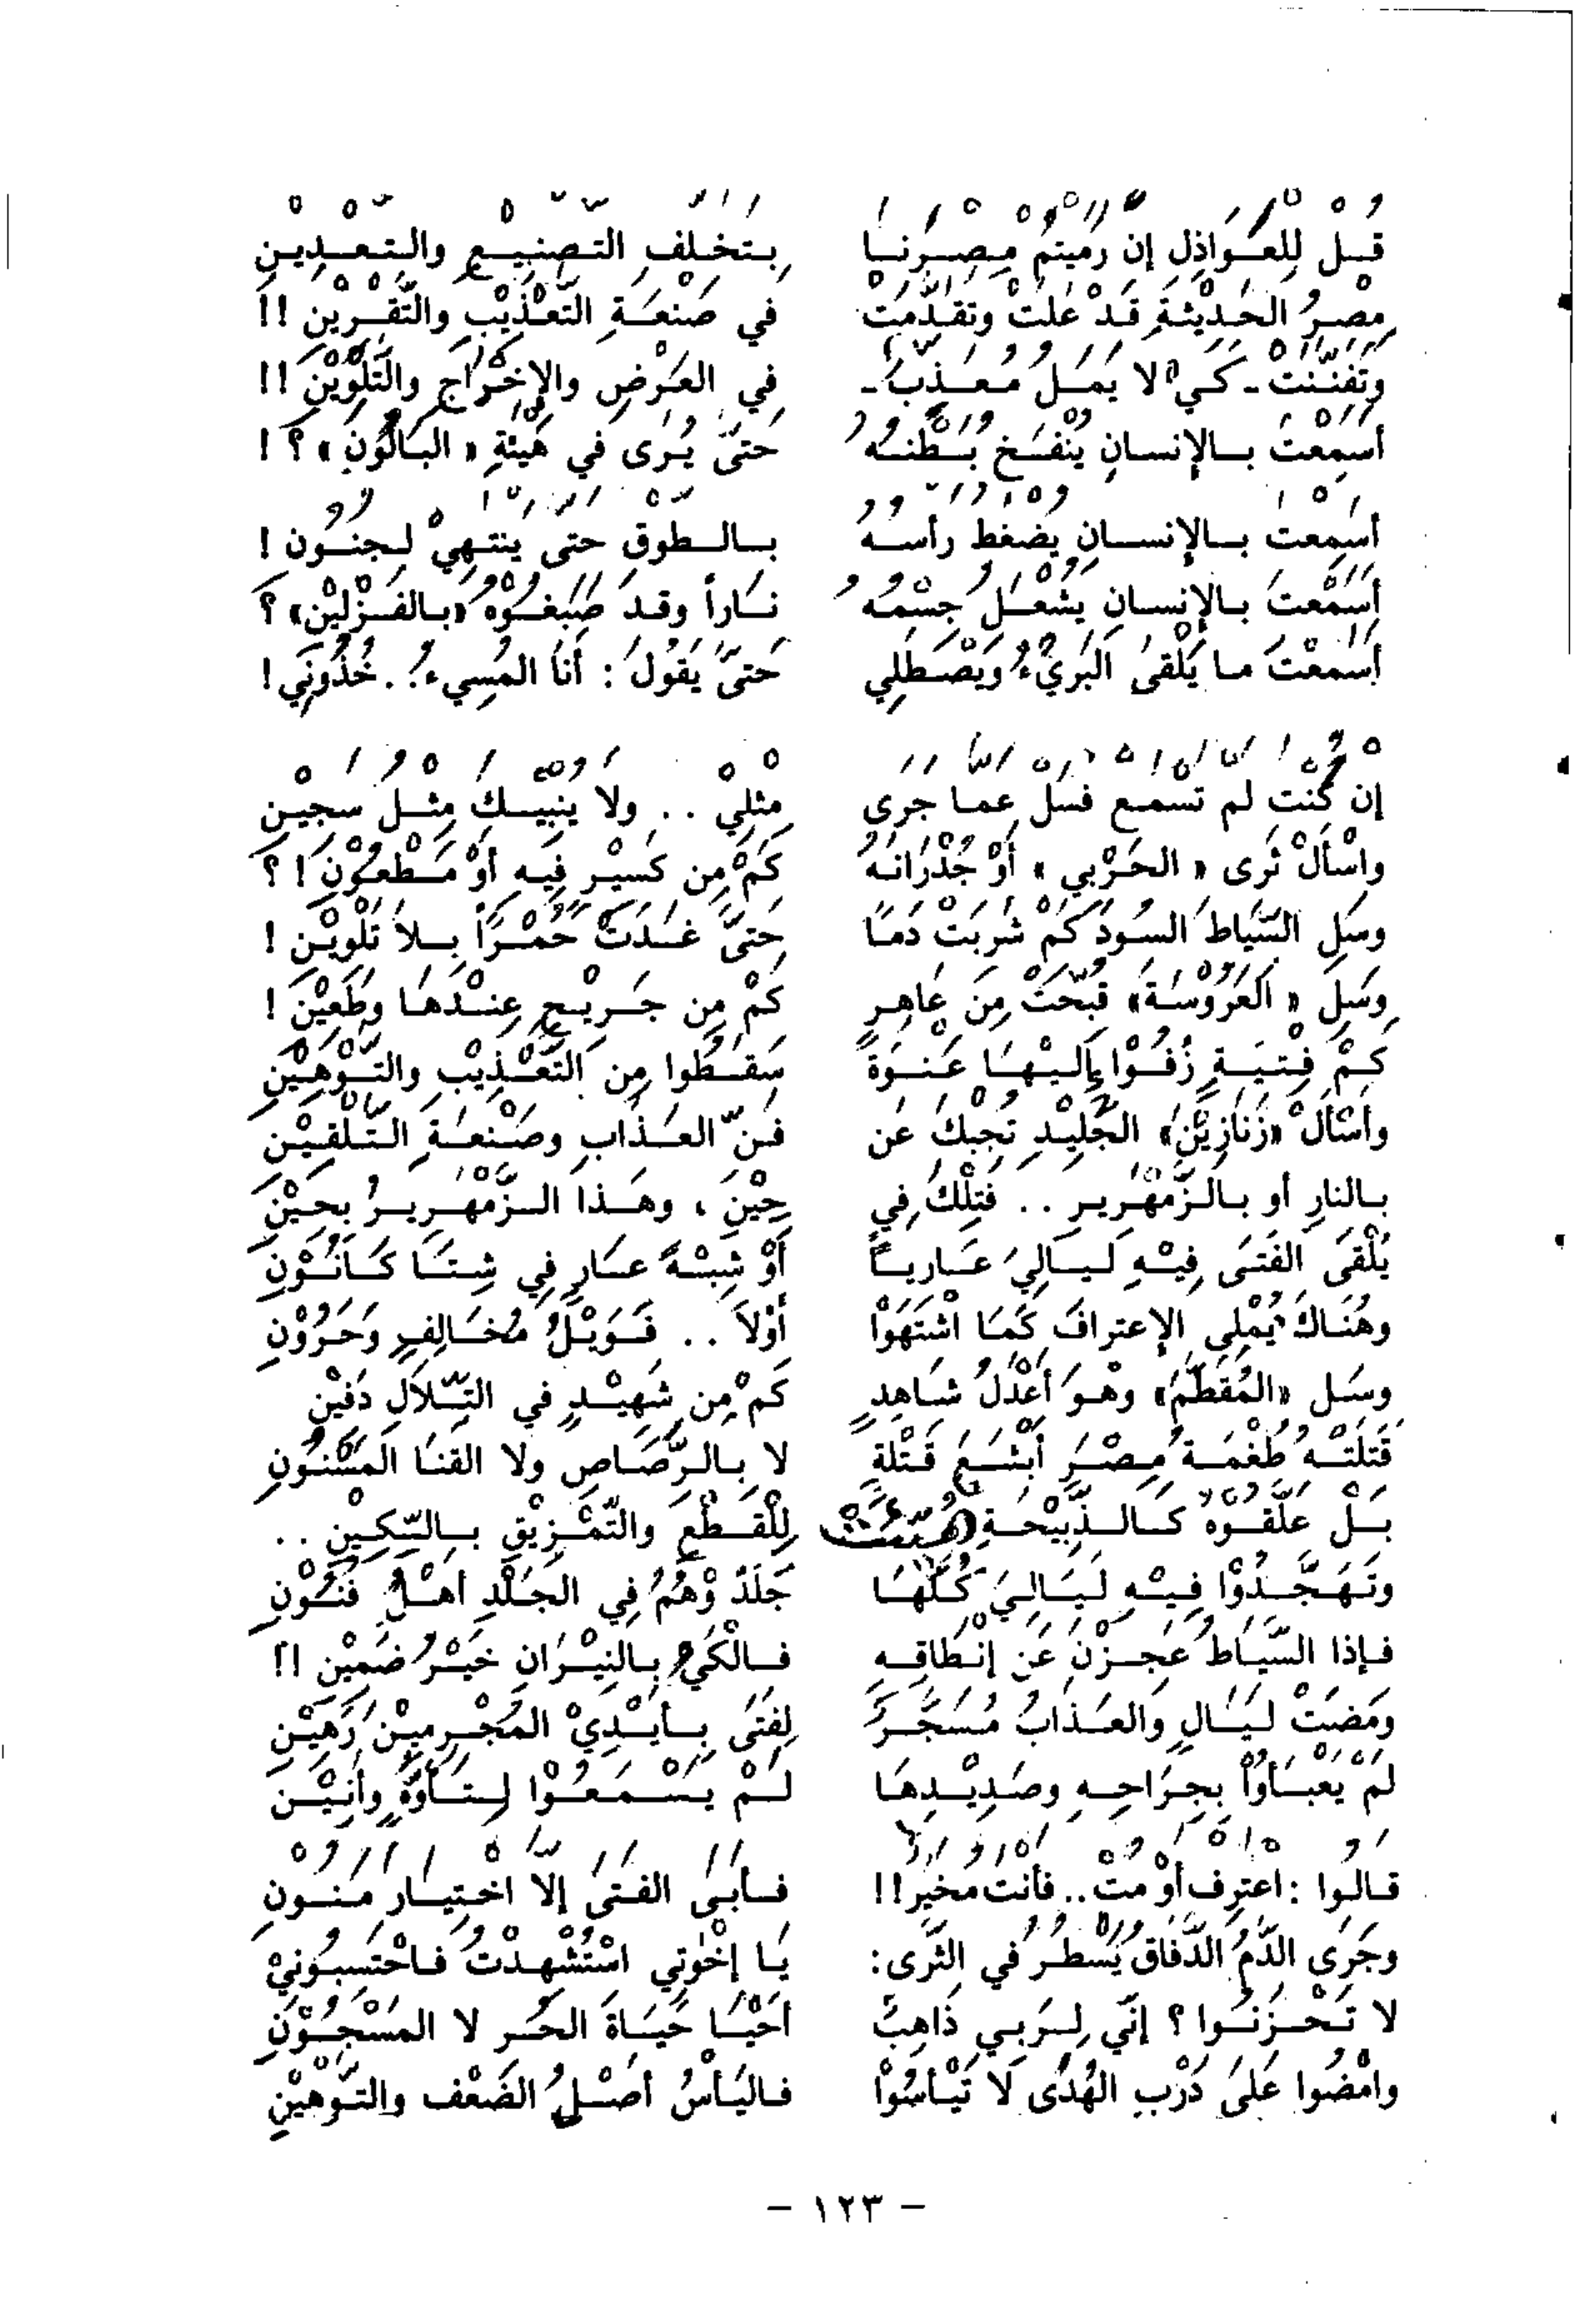 قُلْ لِلعَوَاذِلِ إِنْ رَمَيْتُمْ مِصْرَنَا بِتَخَلُّفِ التَّصْنِيْعِ والتَّعْدِيْنِ
مِصْرُ الحَدِيْثَةِ قَدْ عَلَتْ وتَقَدَّمَتْ في صَنْعَةِ التَّعْذِيْبِ والتَّقْرِيْنِ !!
وتَفَنَّنَتْ - كَيْ لا يَمَلَّ مُعَذَّبٌ - فِي العَرْضِ والإِخْرَاجِ والتَّلْوِيْنِ !!
أَسَمِعْتَ بالإِنسانِ يُنْفَخُ بَطْنُهُ حَتىَّ يُرَى في هَيْئَةِ « البَالُوْنِ » ؟ !
أَسَمِعْتَ بالإِنسانِ يُضْغَطُ رَأْسُهُ بالطَّوْقِ حَتَّى يَنْتَهِيْ لِجُنُوْنِ !
أَسَمِعْتَ بالإِنسانِ يُشْعَلُ جِسْمُهُ نَاراً وقد صَبَغُوْهُ «بالفَزْلِيْنِ» ؟
أَسَمِعْتَ ما يَلْقَى البَرِيْءُ وَيَصْطَلِي حَتىَّ يَقُوْلَ : أَنَا المُسِيءُ . . خُذُوْنِي !
إِنْ كُنْتَ لَمْ تَسْمَعْ فَسَلْ عَمَّا جَرَى مِثْلِيْ . . ولا يُنْبِيْكَ مِثْلُ سَجِيْنِ
واسْأَلْ ثَرَى « الحَرْبي » أَوْ جُدْرَانَهُ كَمْ مِن كَسِيْرٍ فِيْهِ أَوْ مَطْعُوْنِ ! ؟
وسَلِ السِّيَاطَ السُوْدَ كَمْ شَرِبَتْ دَمًا حَتىَّ غَدَتْ حُمْرًا بِلاَ تَلْوِيْنِ !
وسَلِ « العَرُوْسَةَ» قُبِّحَتْ مِنَ عَاهِرٍ كَمْ مِن جَرِيْحٍ عِنْدَهَا وطَعِيْنِ !
كَمْ فِتْيَةٍ زُفُّوْا إِلَيْهَا عَنْوَةً سَقَطُوا مِنَ التَّعْذِيْبِ والتَّوْهِيْنِ
واسْأَلْ «زَنَازِيْنَ» الجَلِيْدِ تُجِبْكَ عَن فَنّ العَذَابِ وصَنْعَةِ التَّلْقِيْنِ
بالنارِ أو بالزَّمْهَرِيرِ . . فَتِلْكَ فِي حِيْنٍ ، وهَذا الزَّمْهَرِيرُ بِحِيْنِ
يُلْقَى الفَتَى فِيْهِ لَيَالِيَ عَارِياً أَوْ شِبْهَ عَارٍ فِي شِتَا كَانُوْنِ
وهُنَاكَ يُمْلِي الإِعترافَ كَمَا اشْتَهَوْا أَوْلاَ . . فَوَيْلُ مُخَالِفٍ وَحَرُوْنِ
وسَل «المُقَطَّمَ» وهْوَ أَعْدَلُ شَاهِدٍ كَمْ مِن شَهِيْدٍ في التّلاَلِ دَفِيْنِ
قَتَلَتْهُ طُغْمَةُ مِصْرَ أَبْشَعَ قَتْلَةٍ لا بِالرَّصَاصِ ولا القَنَا المَسْنُوْنِ
بَلْ عَلَّقُوْهُ كَالذَّبِيْحَةِ هُيِّئَتْ لِلْقَطْعِ والتَّمْزِيْقِ بالسِّكِيْنِ . .
وتَهَجَّدُوْا فِيْهِ لَيَالِيَ كُلَّهَا جَلَدٌ وْهُمُ فِي الجَلْدِ أَهْلُ فُنُوْنِ
فإذا السِّيَاطُ عَجَزْنَ عَن إِنْطَاقِهِ فالْكَيُّ بِالنِيْرَانِ خَيْرُ ضَمِيْنِ !!
ومَضَتْ لَيَالٍ والعَذَابُ مُسَجَّرٌ لِفَتَى بِأَيْدِيْ المُجْرِمِيْنَ رَهِيْنِ
لَمْ يَعْبَأُوْا بِجِرَاحِهِ وصَدِيْدِهَا لَمْ يَسْمَعُوْا لِتَأَوُّهٍ وأَنِيْنِ
قَالُوا : اعْتَرِفْ أَوْ مُتْ . . فَأَنْتَ مُخَيَّرٌ !! فَأَبَى الفَتَى إِلاَّ اخْتِيَارَ مَنُوْنِ
وجَرَى الدَّمُ الدَّفَاقُ يَسْطُرُ في الثَّرَى : يَا إِخْوَتِي اسْتُشْهِدْتُ فَاحْتَسِبُوْنِيْ
لا تَحْزَنُوا ؟ إِنِّي لِرَبي ذَاهِبٌ أَحْيَا حَيَاةَ الحُر لا المَسْجُوْنِ
وامْضُوا عَلىَ دَرْبِ الهُدَى لَا تَيْأَسُوْا فاليَأْسُ أَصْلُ الضَعْف والتَوْهِيْنِ
- ١٢٣ -